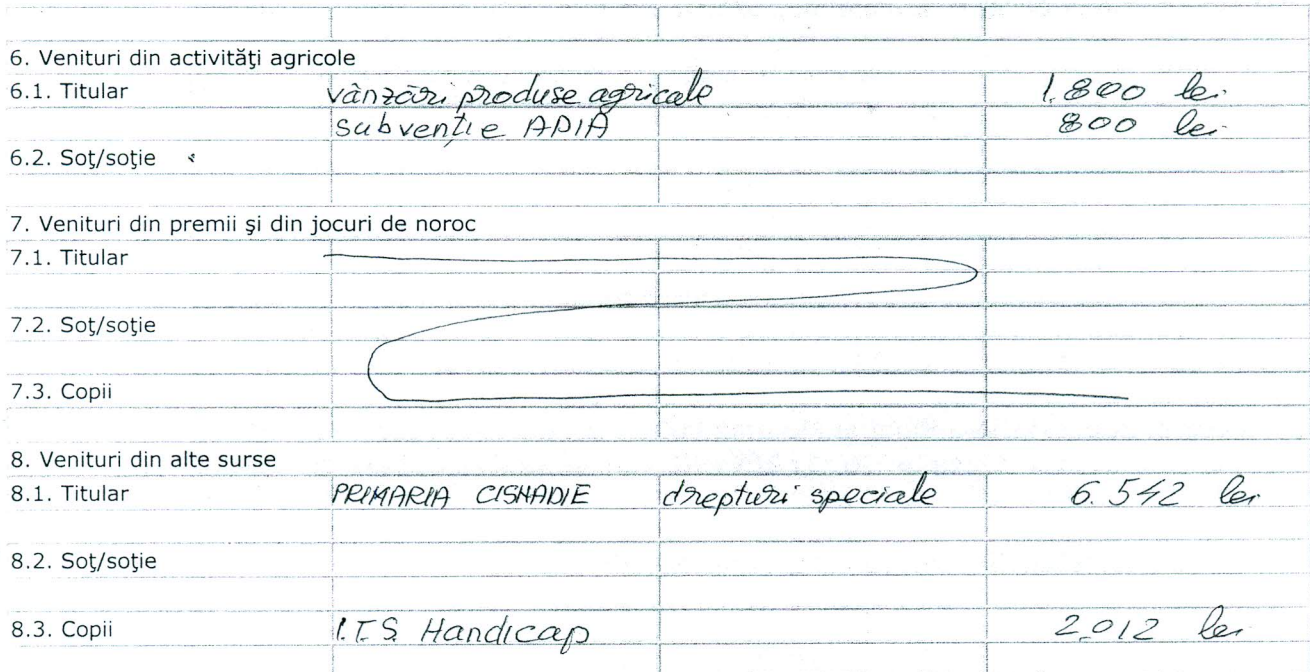 6. Venituri din activităţi agricole
6.1. Titular vânzări produse agricale 1.800 lei
subvenţie APIA 800 lei
6.2. Soţ/soţie
7. Venituri din premii şi din jocuri de noroc
7.1. Titular
7.2. Soţ/soţie
7.3. Copii
8. Venituri din alte surse
8.1. Titular PRIMARIA CISNADIE drepturi speciale 6.542 lei
8.2. Soţ/soţie
8.3. Copii Handicap 2.012 lei